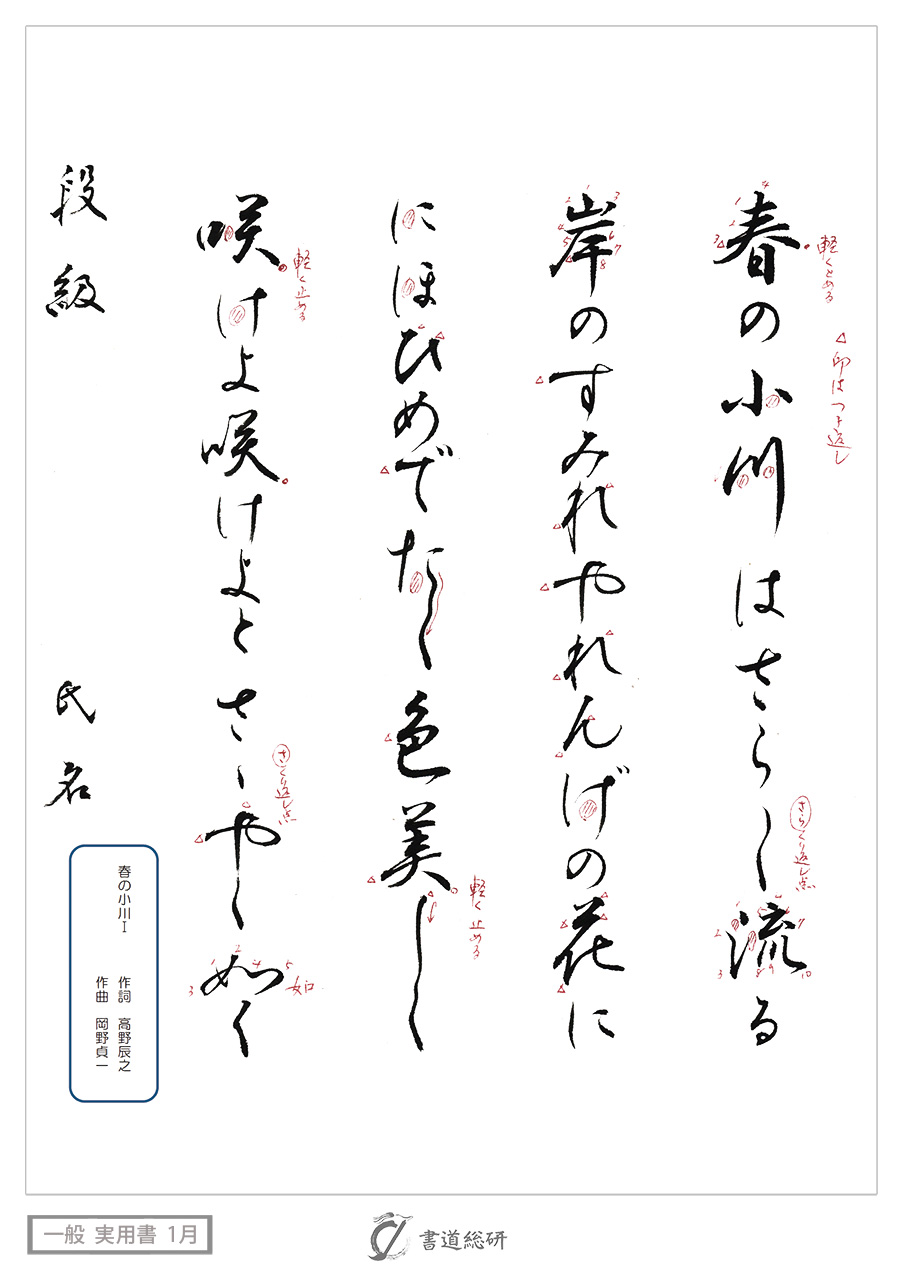 春の小川はさら〱流る
岸のすみれやれんげの花に
にほひめでたく色美しく
咲けよ咲けよとさゝやく如く
段級 氏名
軽くとめる
△印はつよ返し
さらくり返し点
軽く止める
軽く止める
さくり返し点
如
春の小川Ⅰ
作詞 高野辰之
作曲 岡野貞一
一般 実用書 1月
書道総研